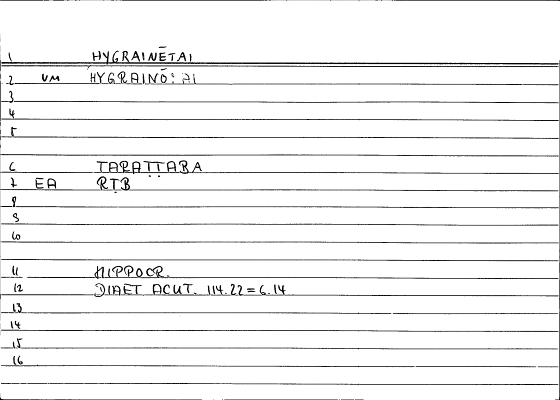 1 HYGRAINĒTAI
2 VM HYGRAINŌ: AI
3
4
5
6 TARAṬṬABA
7 EA RṬB
8
9
10
11 HIPPOCR.
12 DIAET ACUT. 114.22=6.14
13
14
15
16